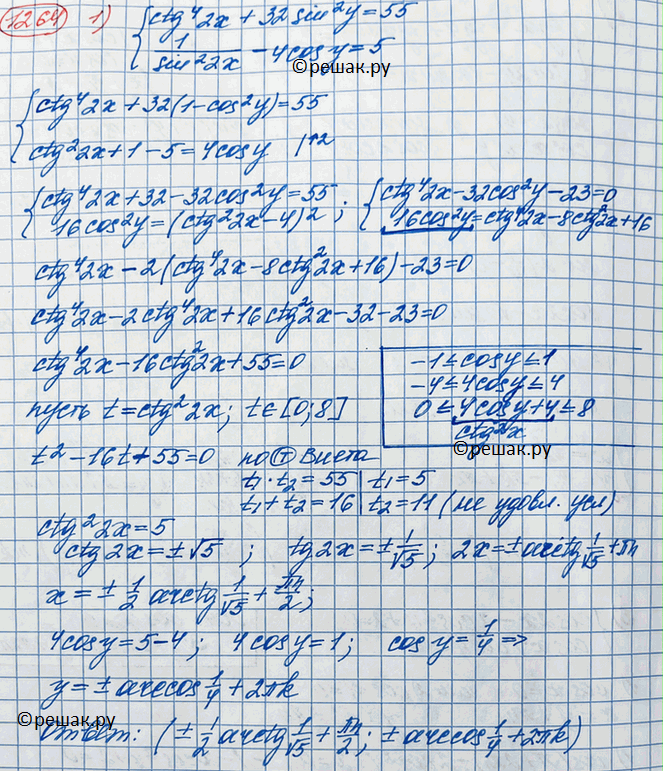 1264 1) { ctg⁴2x + 32 sin²y = 55
1/sin²2x - 4cosy = 5
©решак.ру
{ ctg⁴2x + 32(1-cos²y) = 55
ctg²2x + 1 - 5 = 4cosy |↑2
{ ctg⁴2x + 32 - 32cos²y = 55 ; { ctg⁴2x - 32cos²y - 23 = 0
16cos²y = (ctg²2x - 4)² 16cos²y = ctg⁴2x - 8ctg²2x + 16
ctg⁴2x - 2(ctg⁴2x - 8ctg²2x + 16) - 23 = 0
ctg⁴2x - 2ctg⁴2x + 16ctg²2x - 32 - 23 = 0
ctg⁴2x - 16ctg²2x + 55 = 0
-1 ≤ cosy ≤ 1
-4 ≤ 4cosy ≤ 4
0 ≤ 4cosy + 4 ≤ 8
ctg²x
©решак.ру
пусть t = ctg²2x; t ∈ [0; 8]
t² - 16t + 55 = 0 по Т Виета
t₁ · t₂ = 55 | t₁ = 5
t₁ + t₂ = 16 | t₂ = 11 (не удовл. усл)
ctg²2x = 5
ctg2x = ±√5 ; tg2x = ± 1/√5 ; 2x = ± arctg 1/√5 + πn
x = ± 1/2 arctg 1/√5 + πn/2 ;
4cosy = 5 - 4 ; 4cosy = 1 ; cosy = 1/4 ⇒
y = ± arccos 1/4 + 2πk
©решак.ру
Ответ: (± 1/2 arctg 1/√5 + πn/2 ; ± arccos 1/4 + 2πk)